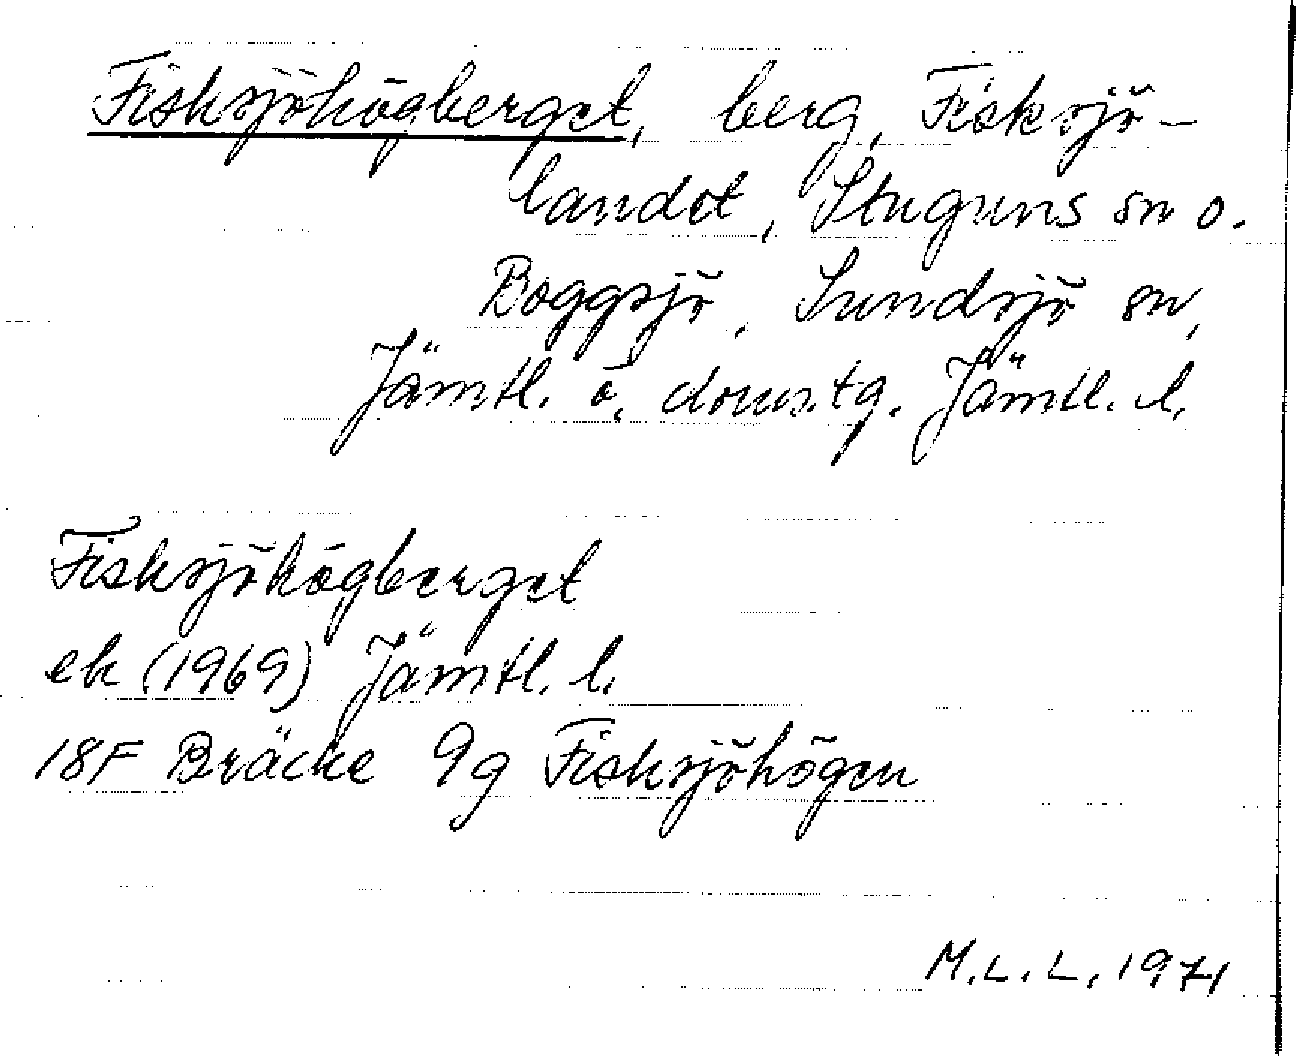 Fisksjöhögberget, berg, Fisksjö-
landet, Stuguns sn o.
Boggsjö, Sundsjö sn,
Jämtl. ö. doms.tg. Jämtl. l.
Fisksjöhögberget
ek (1969) Jämtl. l.
18F Bräcke 9g Fisksjöhögen
M.L.L. 1971